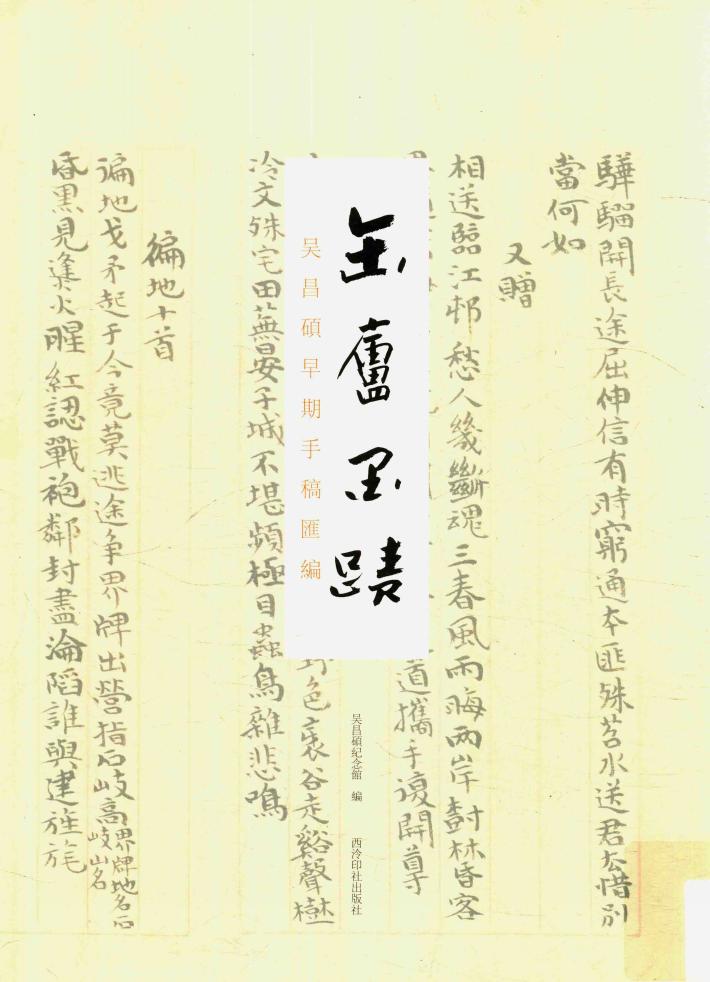 驊騮開長途屈伸信有時窮通本匪殊苕水送君去惜別
當何如
又贈
相送臨江邨愁人幾斷魂三春風雨晦兩岸樹林昏客
道攜手復開尊
缶廬墨蹟
吴昌碩早期手稿匯編
吴昌碩紀念館 編
西泠印社出版社
色裏谷走谿聲樾
冷文殊宅田蕪晏子城不堪頻極目蟲鳥雜悲鳴
徧地十首
徧地戈矛起于今竟莫逃途争界牌出營指石岐高界牌地名石岐山名
昏黑見逢火腥紅認戰袍鄰封盡淪陷誰與建旌旄